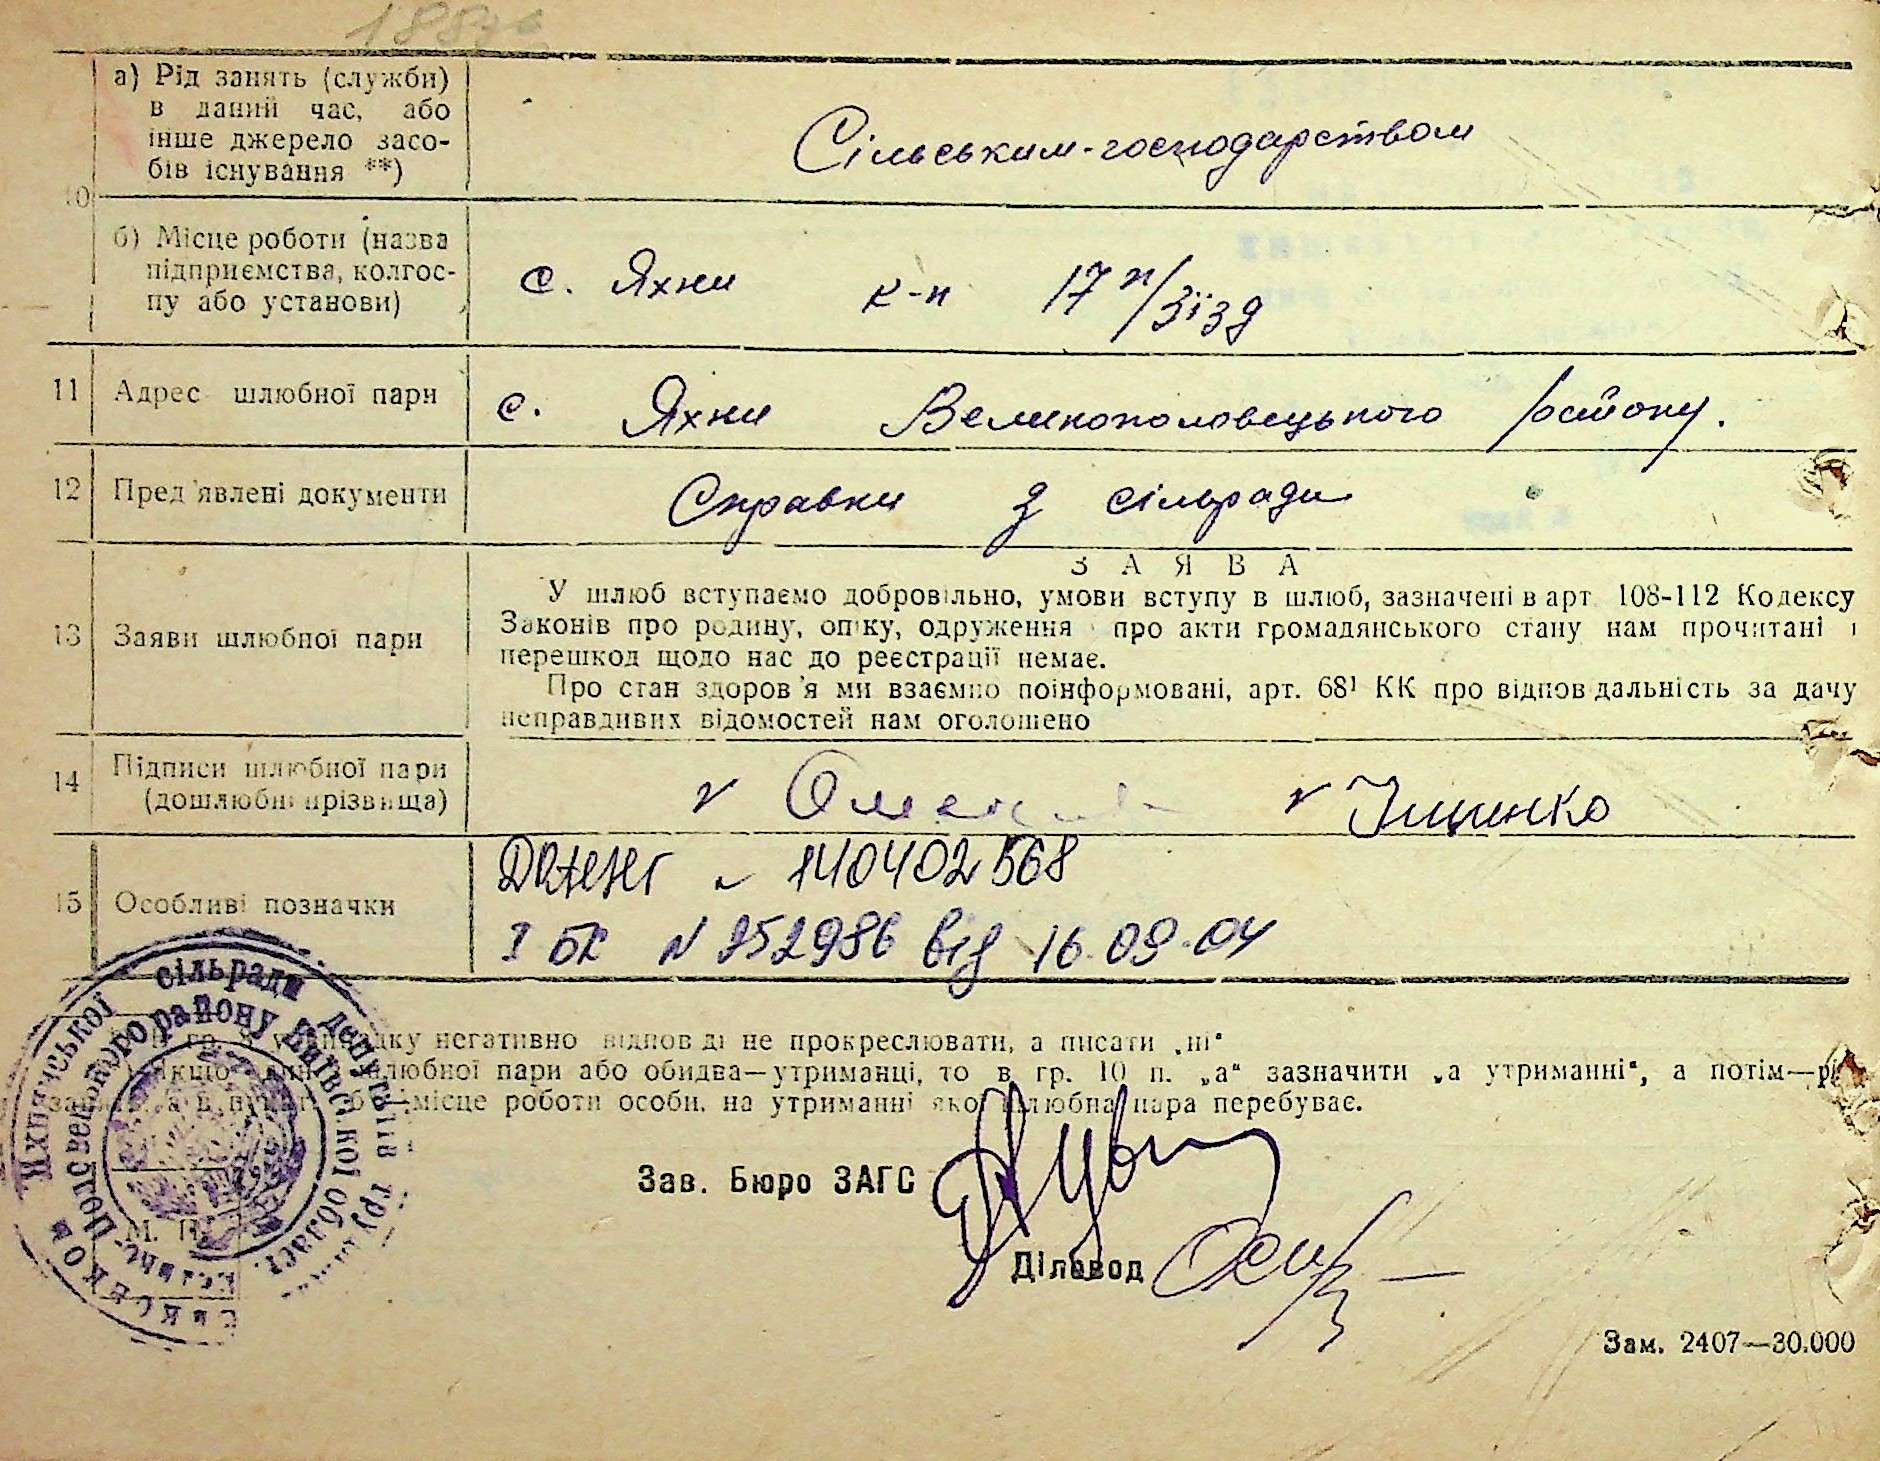 а) Рід занять (служби)
в даний час, або
інше джерело засо-
бів існування **)
Сільським-господарством
10
б) Місце роботи (назва
підприємства, колгос-
пу або установи)
с. Яхни к-п 17 п/Зїзд
11 Адрес шлюбної пари
с. Яхни Великополовецького району.
12 Пред'явлені документи
Справки з сільради
ЗАЯВА
13 Заяви шлюбної пари
У шлюб вступаємо добровільно, умови вступу в шлюб, зазначені в арт 108-112 Кодексу
Законів про родину, опіку, одруження про акти громадянського стану нам прочитані і
перешкод щодо нас до реєстрації немає.
Про стан здоров'я ми взаємно поінформовані, арт. 68¹ КК про відповідальність за дачу
неправдивих відомостей нам оголошено
14 Підписи шлюбної пари
(дошлюбні прізвища)
Ищинко
15 Особливі позначки
140402568
І БК N 252986 від 16.09.04
негативно відповіді не прокреслювати, а писати „ні“
якщо шлюбної пари або обидва—утриманці, то в гр. 10 п. „а“ зазначити „а утриманні“, а потім—рід
місце роботи особи, на утриманні якої шлюбна пара перебуває.
сільради депутатів
району Київської області
М. П.
Зав. Бюро ЗАГС
Діловод
Зам. 2407—30.000